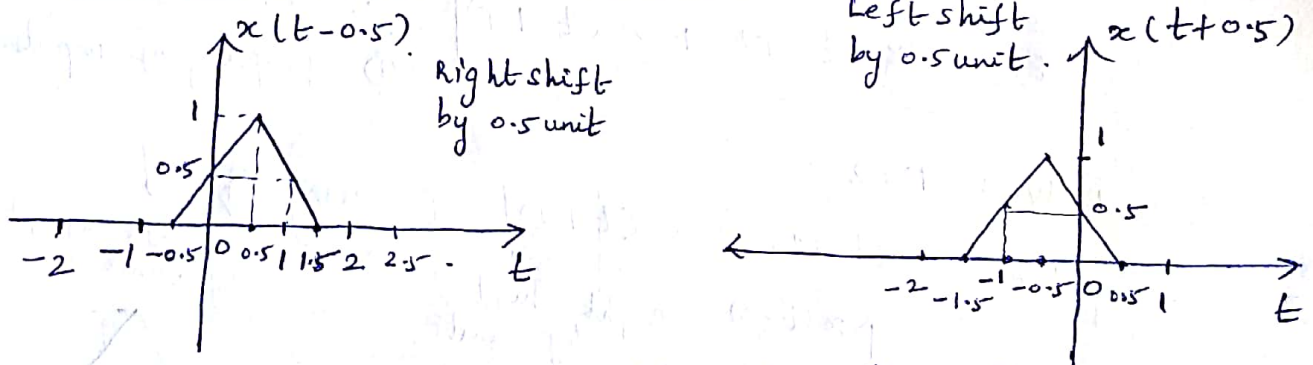 x(t-0.5).
Right shift
by 0.5 unit
1
0.5
-2 -1 -0.5 0 0.5 1 1.5 2 2.5 .
t
Left shift
by 0.5 unit.
x(t+0.5)
1
0.5
-2 -1.5 -1 -0.5 0 0.5 1
t